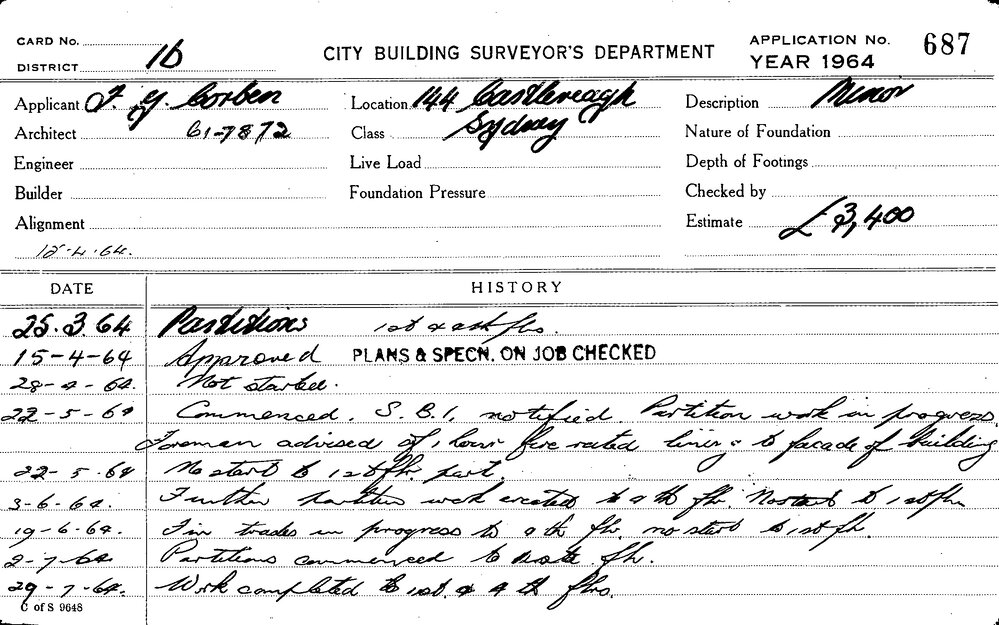 CARD No.
DISTRICT 1b
CITY BUILDING SURVEYOR'S DEPARTMENT
APPLICATION No. 687
YEAR 1964
Applicant F. G. Corben
Location 144 Castlereagh
Description Minor
Architect 61-7872
Class Sydney
Nature of Foundation
Engineer
Live Load
Depth of Footings
Builder
Foundation Pressure
Checked by
Alignment
Estimate £3,400
15-4-64.
DATE
HISTORY
25.3.64 Partitions 1st & 4th flrs.
15-4-64 Approved PLANS & SPECN. ON JOB CHECKED
28-4-64. Not started.
22-5-64 Commenced. S.B.I. notified Partition work in progress.
Foreman advised of 1 hour fire rated lining to facade of building
22-5-64 No start to 1st flr. part.
3-6-64. Further partition work erected to 4th flr. No start to 1st flr
19-6-64. Fin trades in progress to 4th flr. no start to 1st flr.
2-7-64 Partitions commenced to flr.
29-7-64. Work completed to 1st. & 4th flrs.
C of S 9648